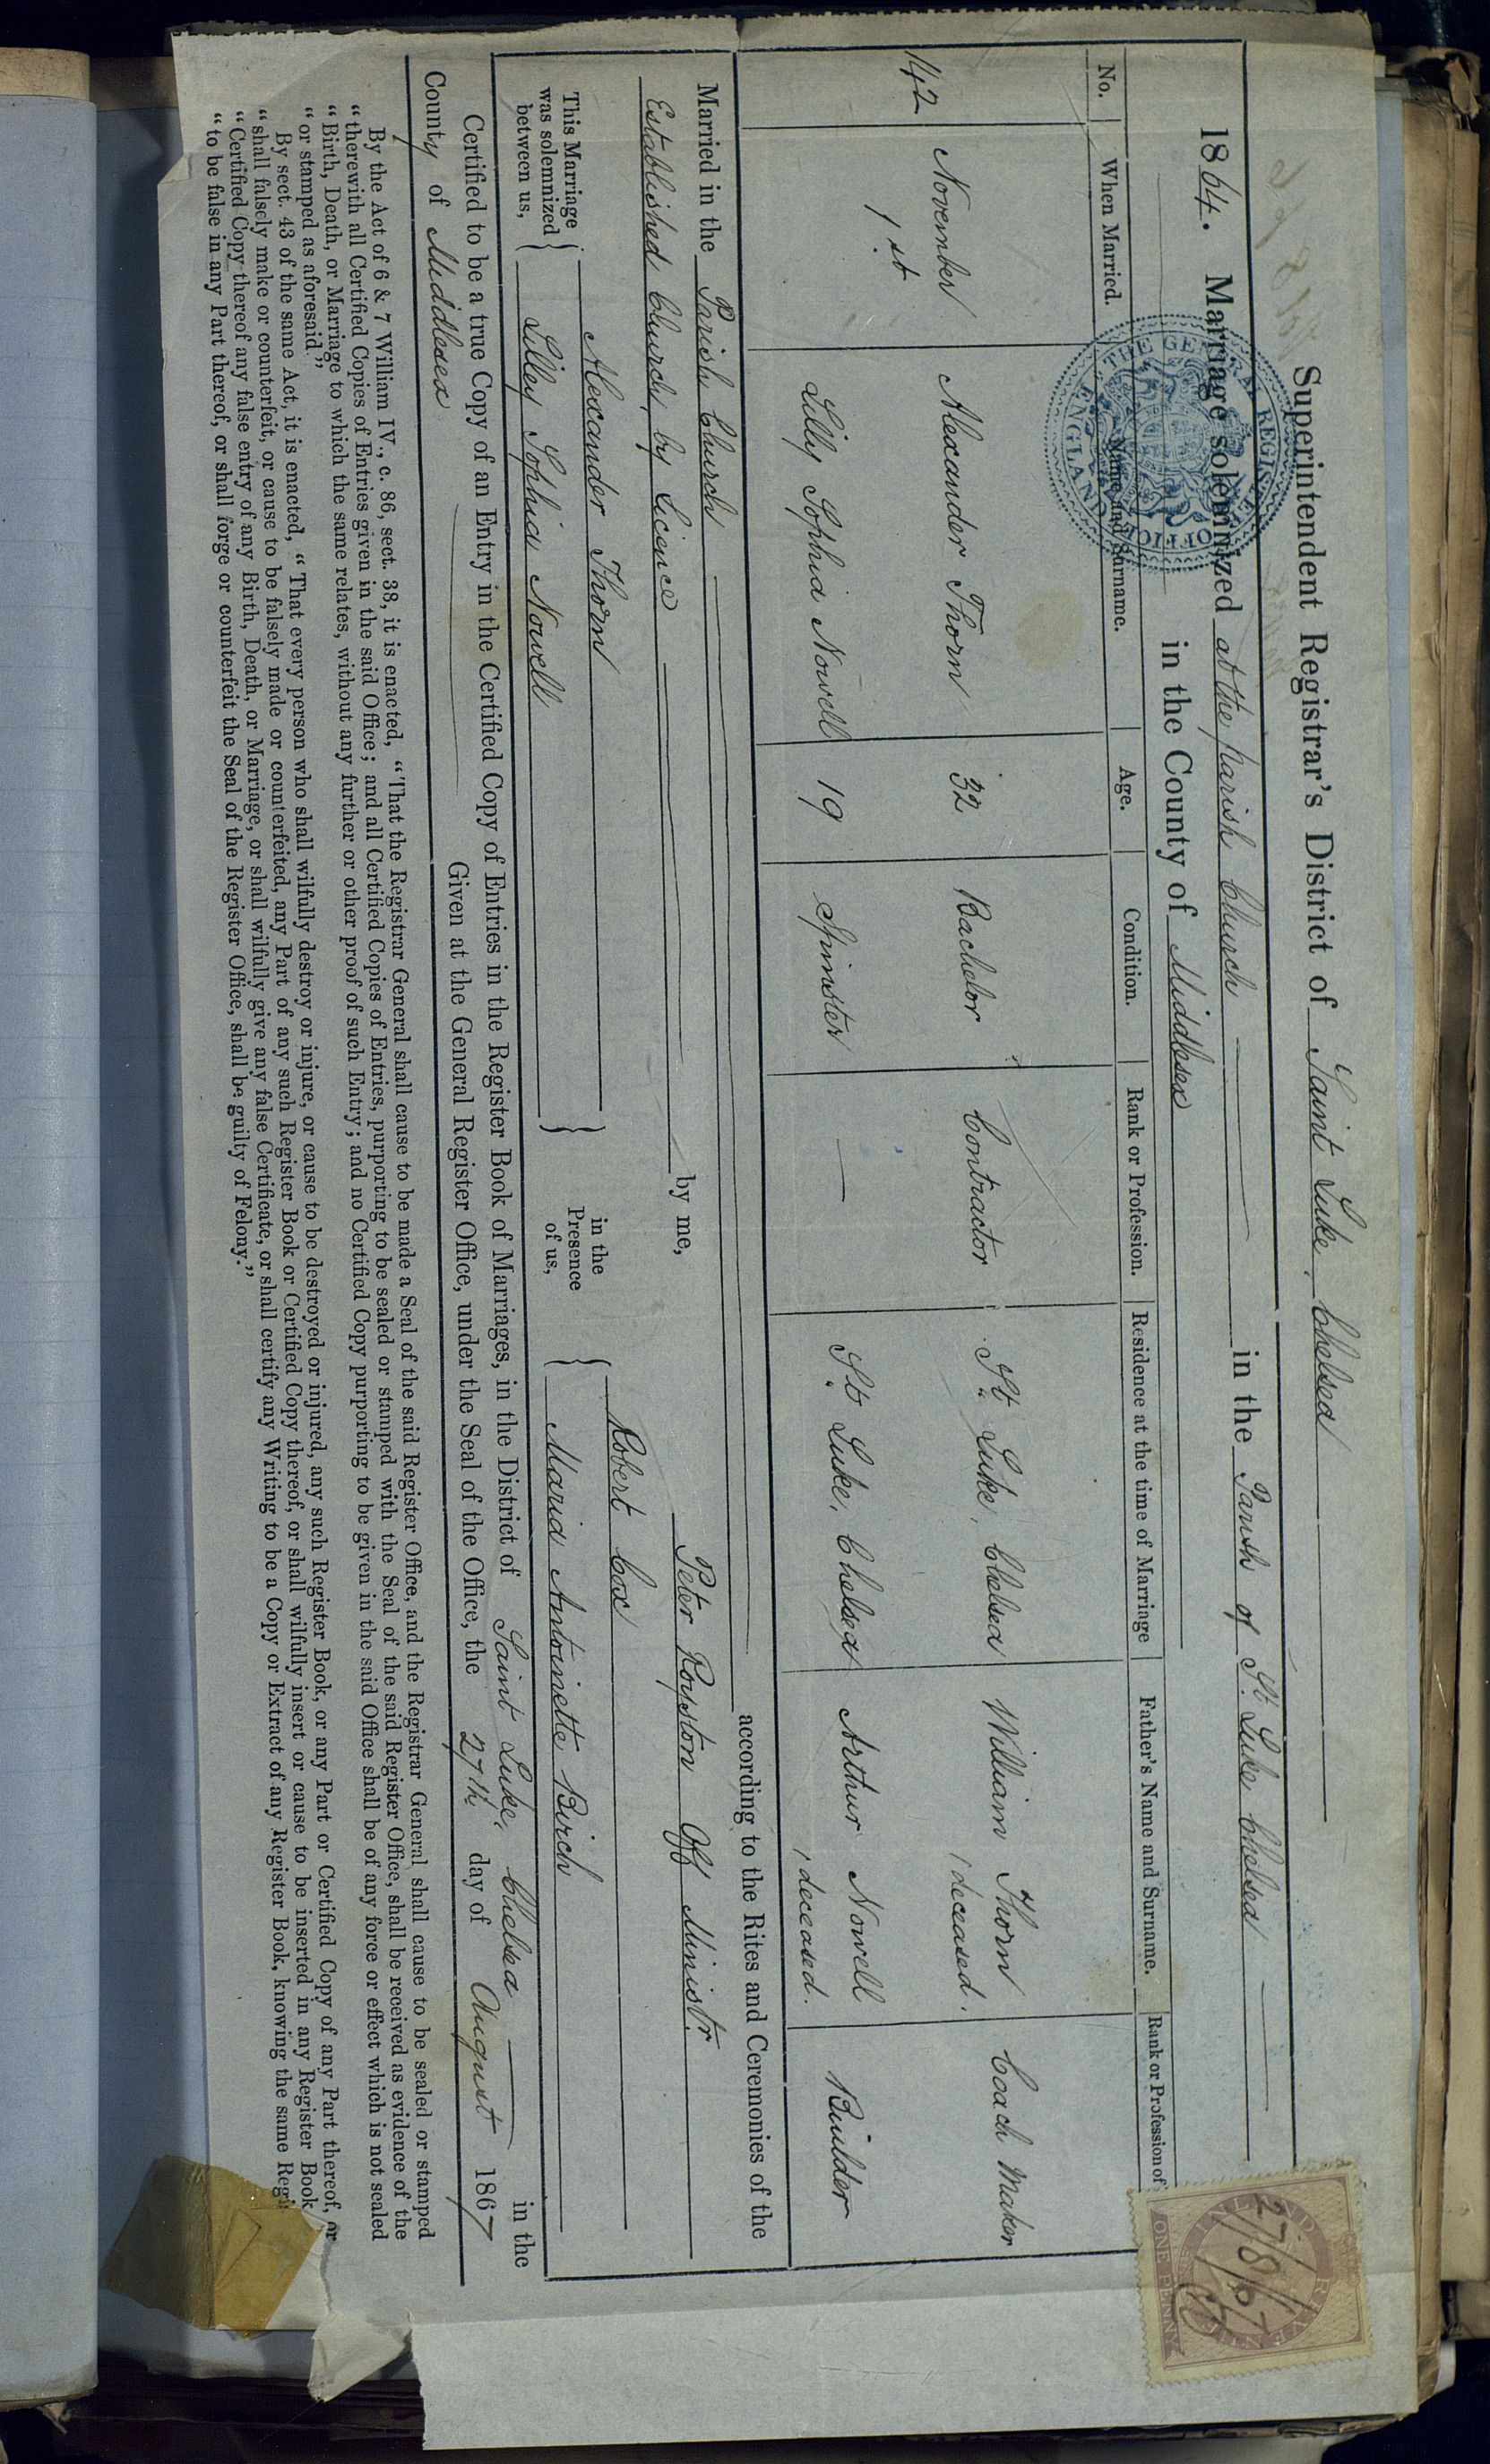 Superintendent Registrar's District of Saint Luke, Chelsea
1864. Marriage solemnized at the parish Church in the Parish of St. Luke Chelsea
in the County of Middlesex
No. When Married. Name and Surname. Age. Condition. Rank or Profession. Residence at the time of Marriage Father's Name and Surname. Rank or Profession of
142 November 1st Alexander Thorn 32 Bachelor Contractor St. Luke, Chelsea William Thorn (deceased. Coach Maker
Lilly Sophia Nowell 19 Spinster — St. Luke, Chelsea Arthur Nowell (deceased. Builder
Married in the Parish Church according to the Rites and Ceremonies of the
Established Church, by Licence by me, Peter Royston Off Ministr.
This Marriage was solemnized between us, Alexander Thorn in the Presence of us, Robert Cox
Lilley Sophia Nowell Maria Antoinette Birch
Certified to be a true Copy of an Entry in the Certified Copy of Entries in the Register Book of Marriages, in the District of Saint Luke, Chelsea in the
County of Middlesex Given at the General Register Office, under the Seal of the Office, the 27th day of August 1867
By the Act of 6 & 7 William IV., c. 86, sect. 38, it is enacted, "That the Registrar General shall cause to be made a Seal of the said Register Office, and the Registrar General shall cause to be sealed or stamped
"therewith all Certified Copies of Entries given in the said Office; and all Certified Copies of Entries, purporting to be sealed or stamped with the Seal of the said Register Office, shall be received as evidence of the
"Birth, Death, or Marriage to which the same relates, without any further or other proof of such Entry; and no Certified Copy purporting to be given in the said Office shall be of any force or effect which is not sealed
"or stamped as aforesaid."
By sect. 43 of the same Act, it is enacted, "That every person who shall wilfully destroy or injure, or cause to be destroyed or injured, any such Register Book, or any Part or Certified Copy of any Part thereof, or
"shall falsely make or counterfeit, or cause to be falsely made or counterfeited, any Part of any such Register Book or Certified Copy thereof, or shall wilfully insert or cause to be inserted in any Register Book
"Certified Copy thereof any false entry of any Birth, Death, or Marriage, or shall wilfully give any false Certificate, or shall certify any Writing to be a Copy or Extract of any Register Book, knowing the same Regi
"to be false in any Part thereof, or shall forge or counterfeit the Seal of the Register Office, shall be guilty of Felony."
THE GENERAL REGISTER OFFICE
ENGLAND
INLAND REVENUE
ONE PENNY
27/8/67